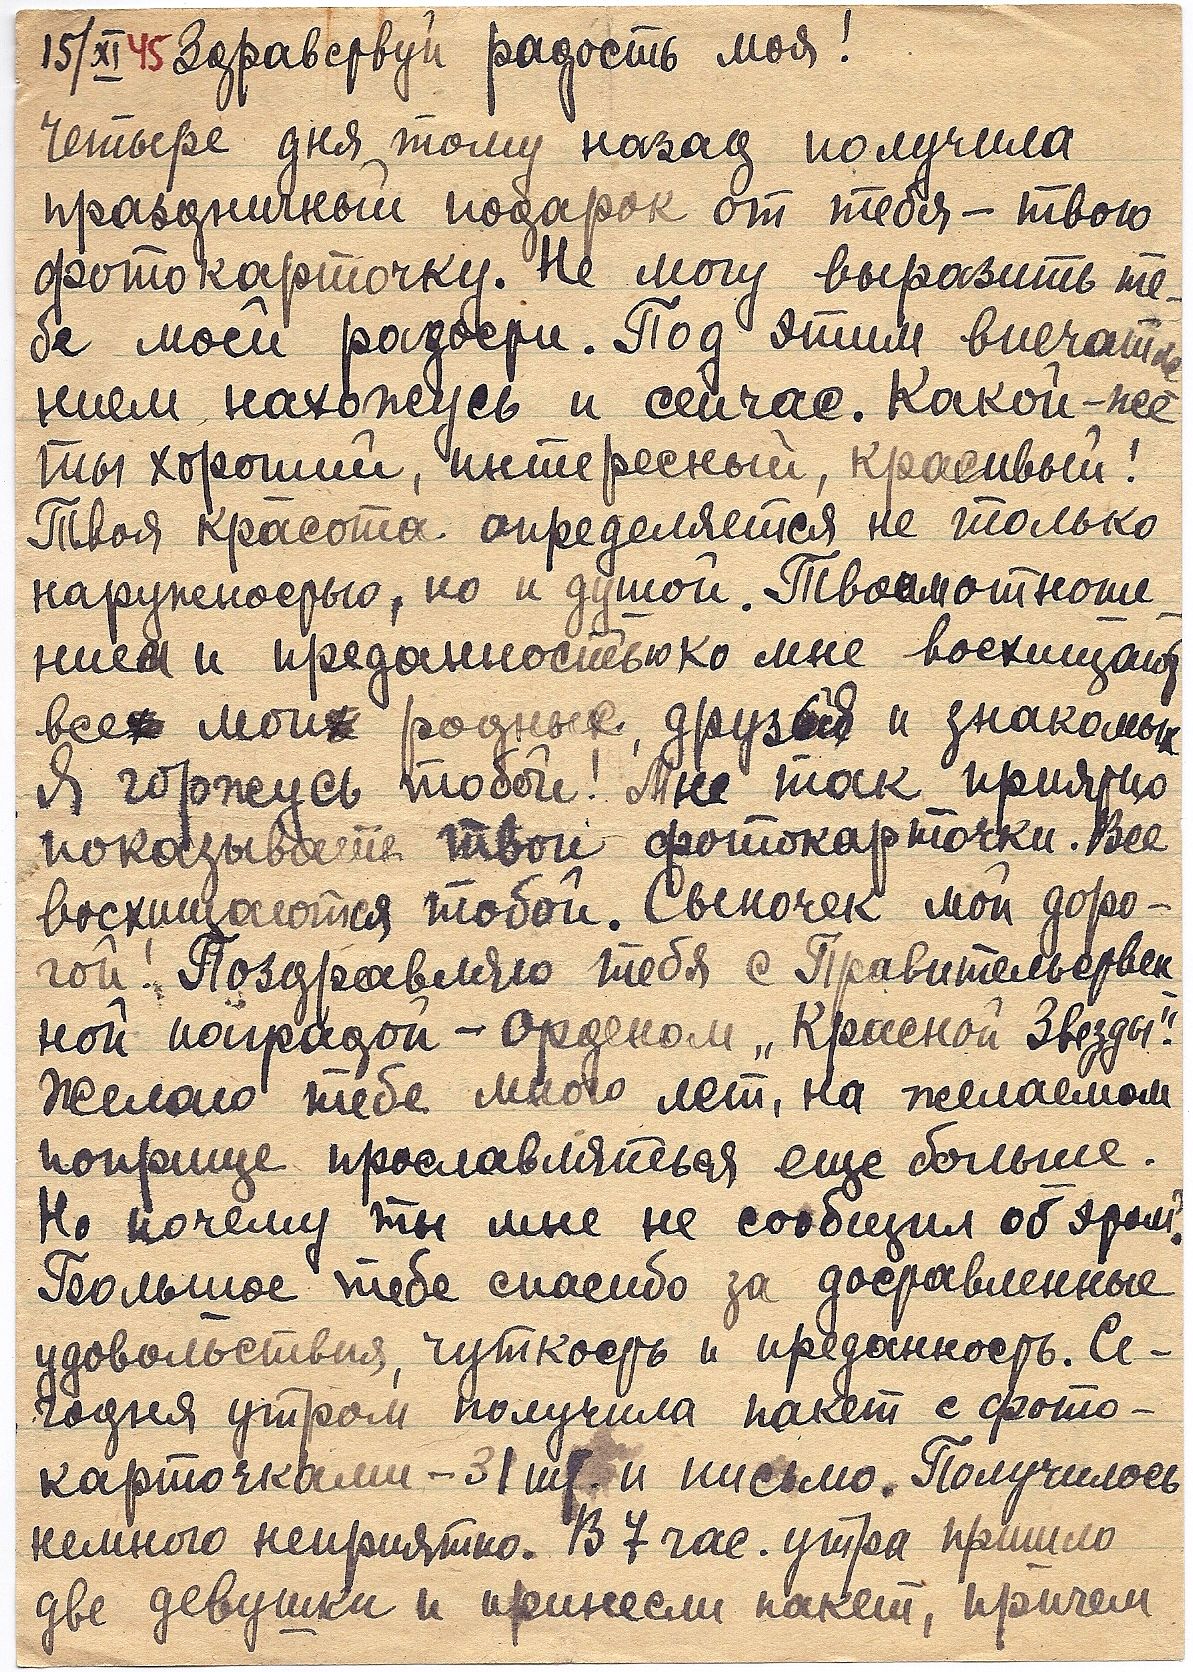 15/XI 45 Здравствуй радость моя!
Четыре дня тому назад получила
праздничный подарок от тебя – твою
фотокарточку. Не могу выразить те-
бе моей радости. Под этим впечатле
нием нахожусь и сейчас. Какой-же
ты хороший, интересный, красивый!
Твоя красота определяется не только
наружностью, но и душой. Твоим отноше
нием и преданностью ко мне восхищают
все мои родные, друзья и знакомые
Я горжусь тобой! Мне так приятно
показывать твои фотокарточки. Все
восхищаются тобой. Сыночек мой доро-
гой! Поздравляю тебя с Правительствен
ной наградой – Орденом „Красной Звезды".
Желаю тебе много лет, на желаемом
поприще прославляться еще больше.
Но почему ты мне не сообщил об этом?
Большое тебе спасибо за доставленные
удовольствия, чуткость и преданность. Се-
годня утром получила пакет с фото-
карточками – 31 шт. и письмо. Получилось
немного неприятно. В 7 час. утра пришло
две девушки и принесли пакет, причем